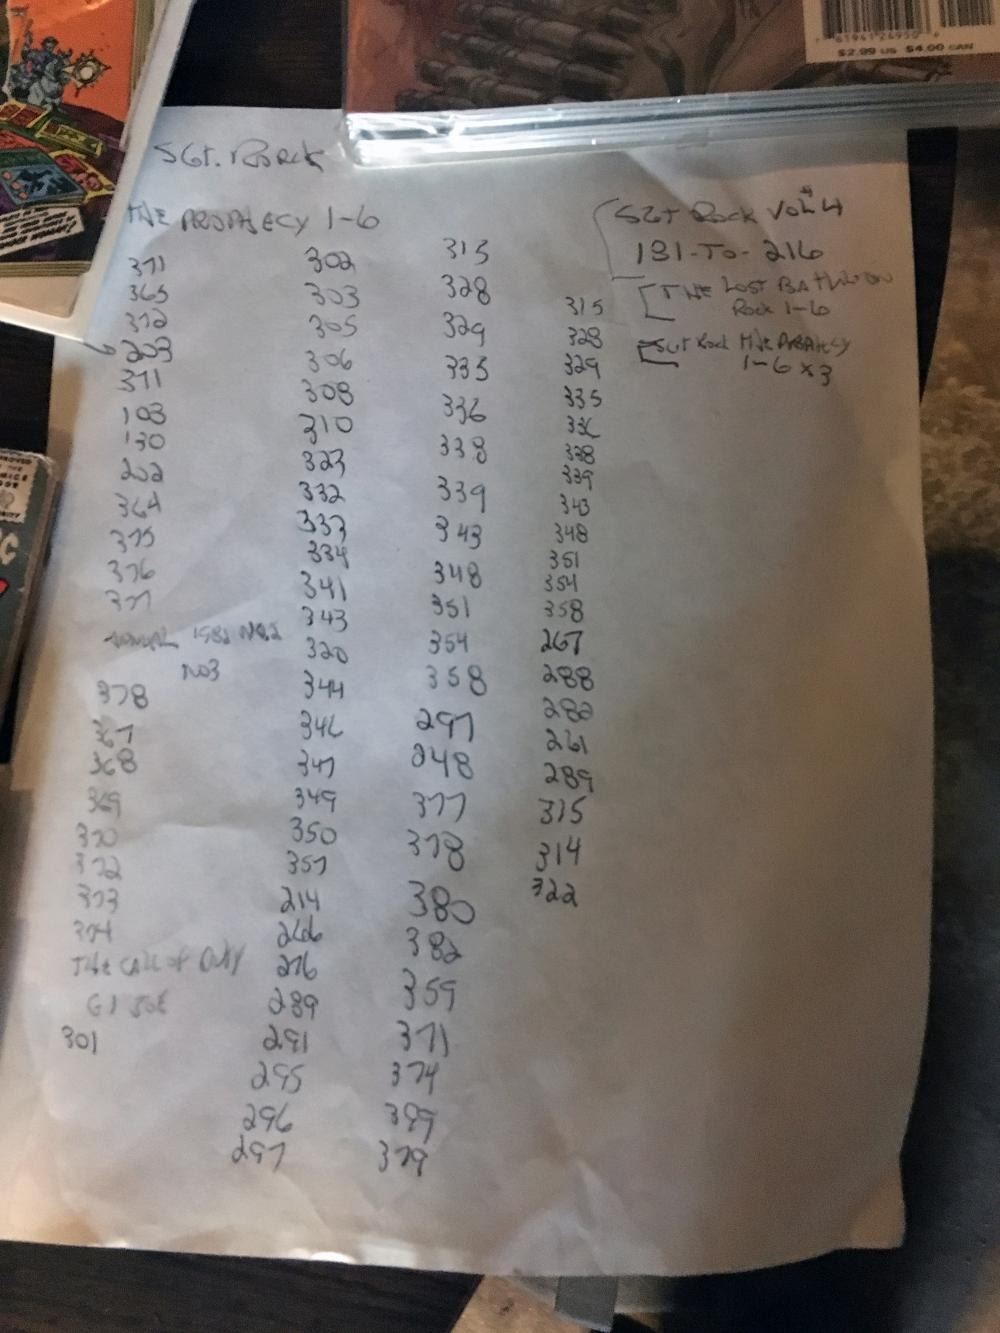 $2.99 US $4.00 CAN
Sgt. Rock
THE PROPHECY 1-6
371
365
312
203
371
103
130
202
364
375
376
377
ANNUAL 1982 NO.2
NO3
378
367
368
369
370
372
373
374
THE CALL OF DUTY
GI JOE
301
302
303
305
306
308
310
323
332
333
334
341
343
320
344
346
347
349
350
357
214
266
276
289
291
295
296
297
315
328
329
335
336
338
339
343
348
351
354
358
297
248
377
378
380
382
359
371
374
399
379
315
328
329
335
336
338
339
343
348
351
354
358
267
288
282
261
289
315
314
322
SGT Rock Vol#4
181-TO-216
THE LOST BATTALION
Rock 1-6
SGT Rock THE PROPHECY
1-6 x3